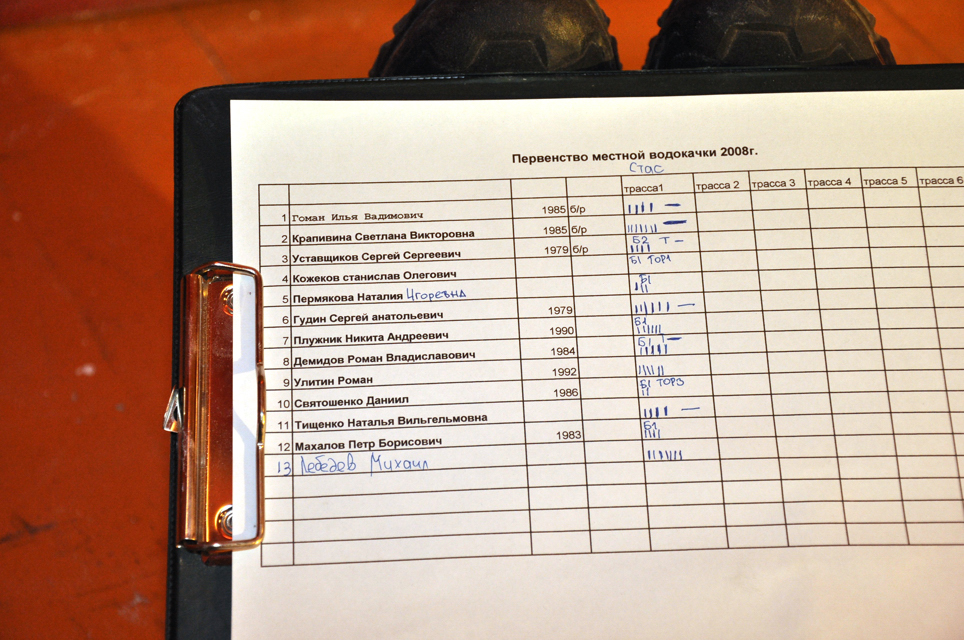 Первенство местной водокачки 2008г.
Стас
трасса1 трасса 2 трасса 3 трасса 4 трасса 5 трасса 6
1 Гоман Илья Вадимович 1985 б/р
2 Крапивина Светлана Викторовна 1985 б/р
3 Уставщиков Сергей Сергеевич 1979 б/р Б2 Т –
4 Кожеков станислав Олегович Б1 ТОР1
5 Пермякова Наталия Игоревна Б1
6 Гудин Сергей анатольевич 1979
7 Плужник Никита Андреевич 1990 Б1
8 Демидов Роман Владиславович 1984 Б1 Т –
9 Улитин Роман 1992
10 Святошенко Даниил 1986 Б1 ТОР3
11 Тищенко Наталья Вильгельмовна
12 Махалов Петр Борисович 1983 Б1
13 Лебедев Михаил